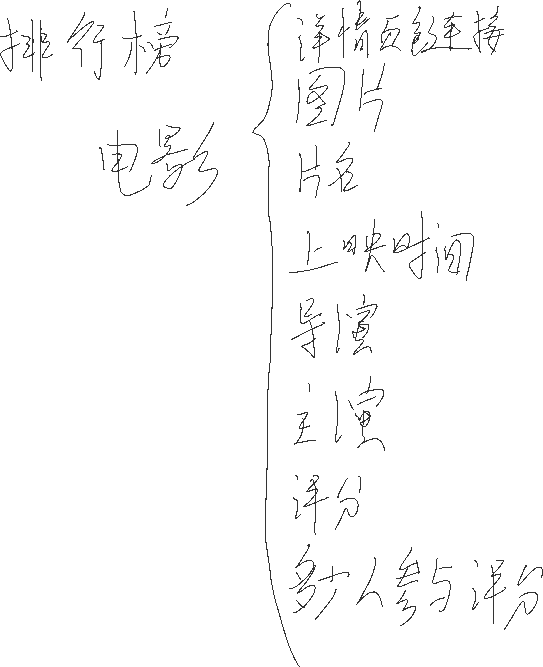 排行榜
电影
详情页连接
图片
片名
上映时间
导演
主演
评分
多少人参与评分